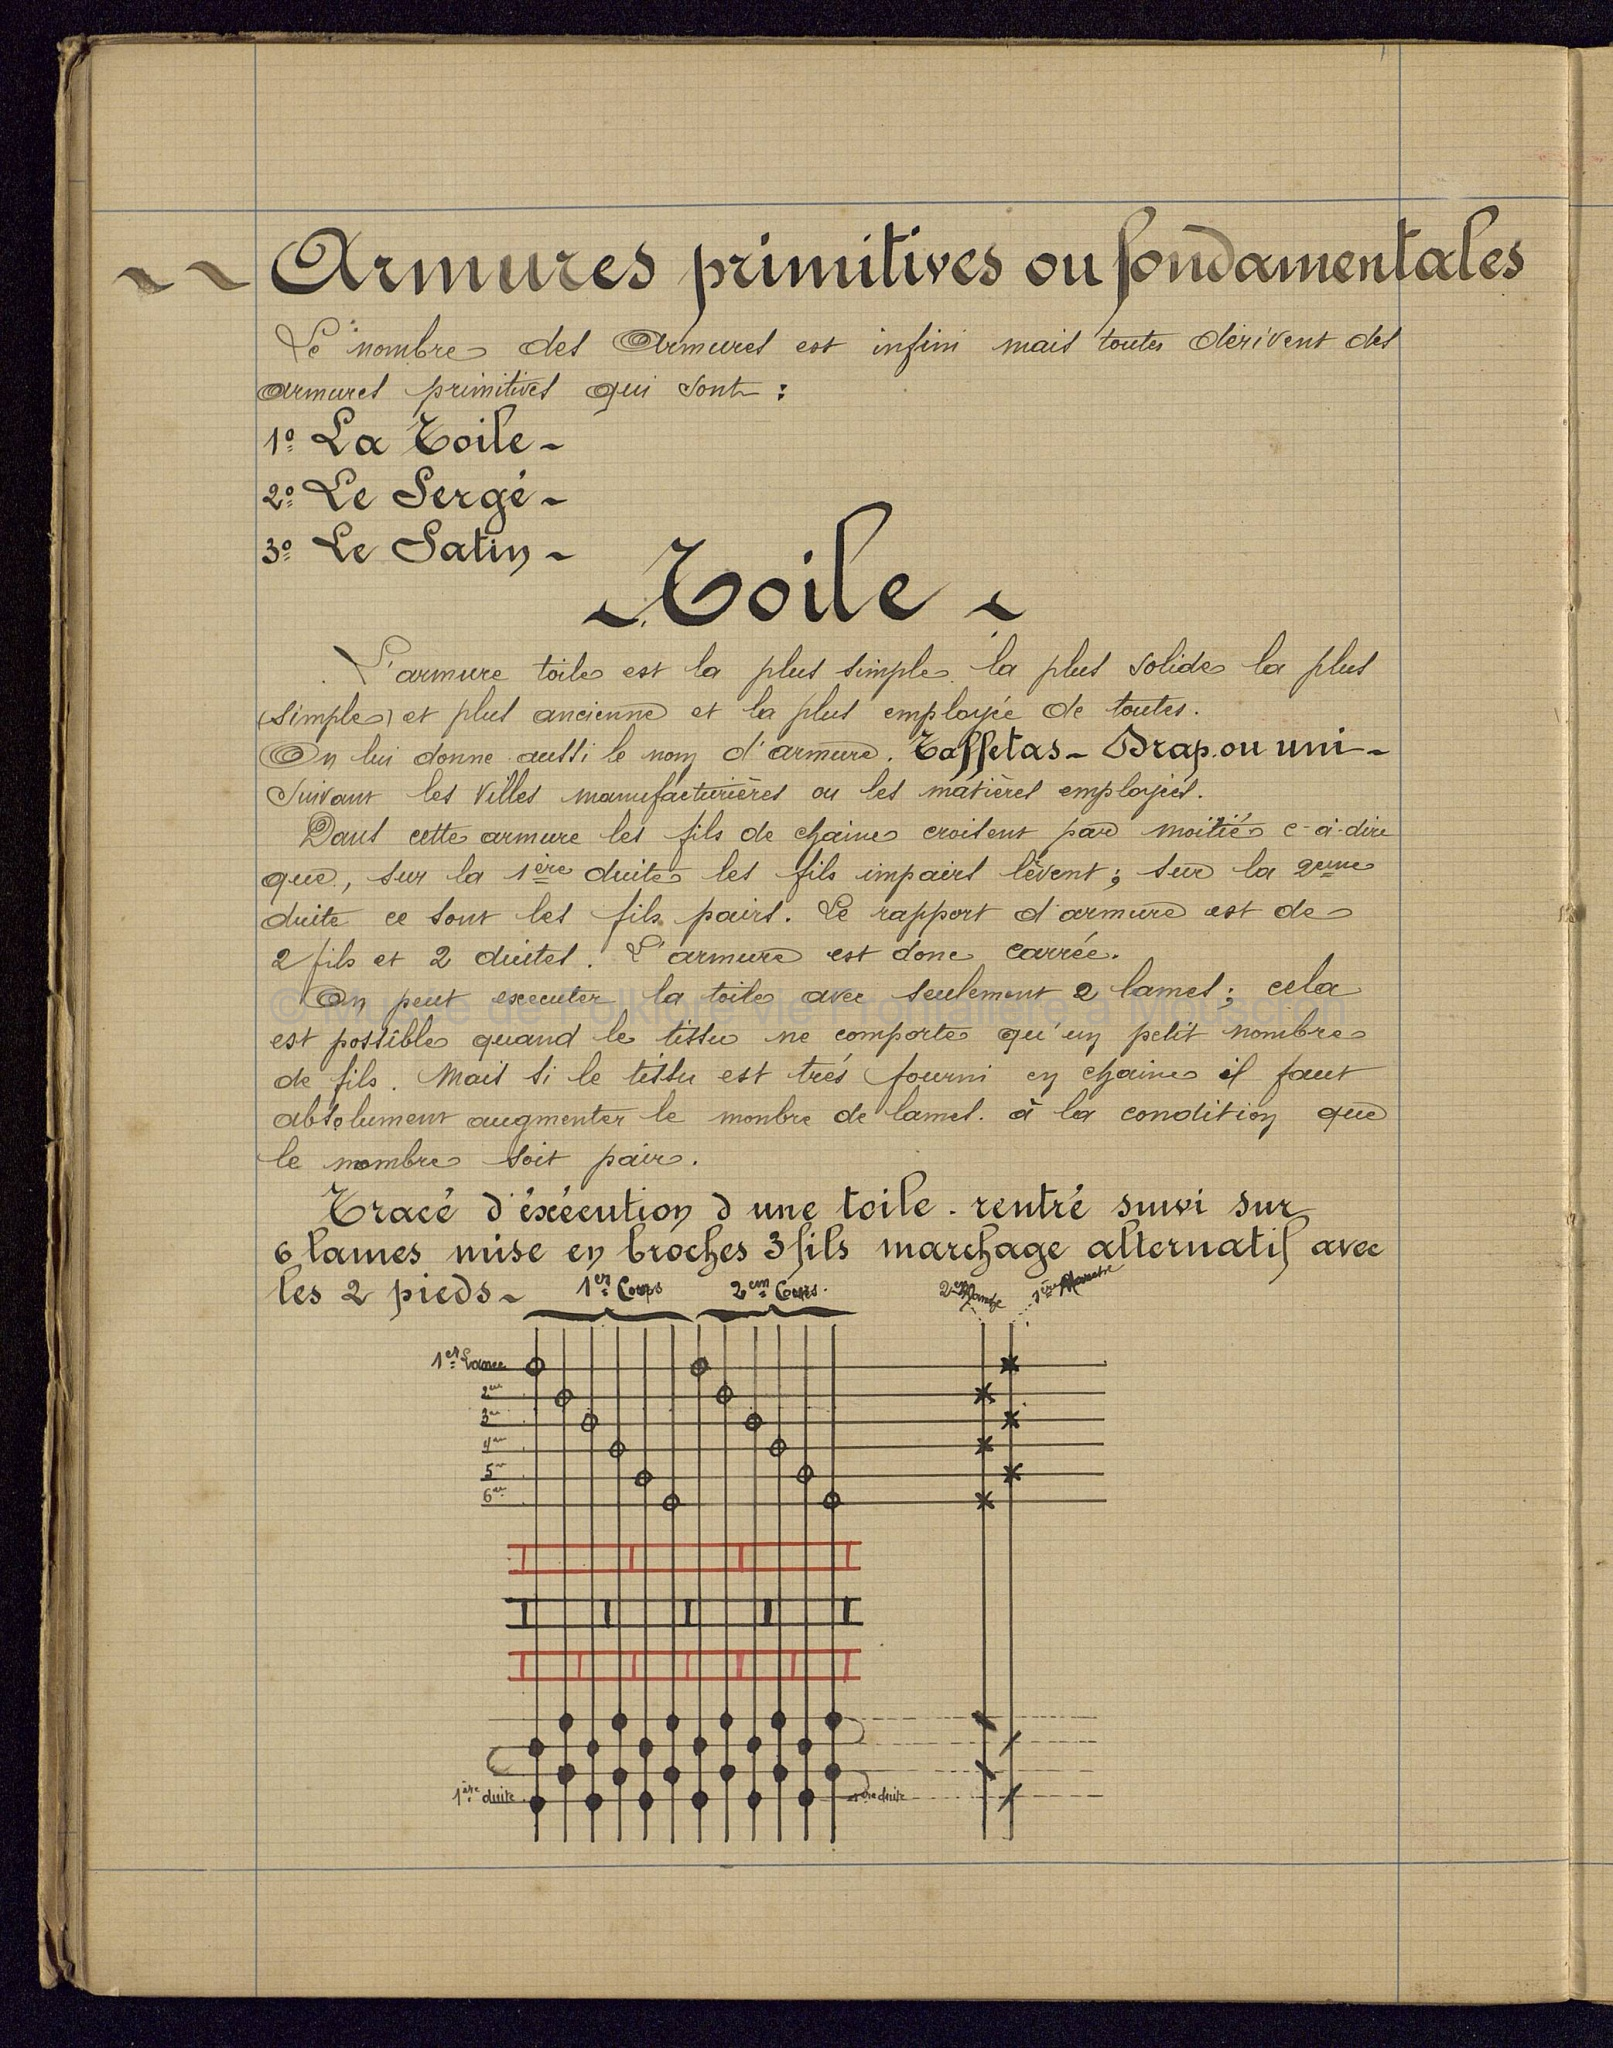 Armures primitives ou fondamentales
Le nombre des Armures est infini mais toutes dérivent des
armures primitives qui sont :
1º La Toile -
2º Le Sergé -
3º Le Satin -
Toile -
L'armure toile est la plus simple la plus solide la plus
(simple) et plus ancienne et la plus employée de toutes.
On lui donne aussi le nom d'armure. Taffetas - Drap. ou uni -
Suivant les villes manufacturières ou les matières employées.
Dans cette armure les fils de chaine croisent par moitié c-à-dire
que, sur la 1ère duite les fils impairs lèvent ; sur la 2eme
duite ce sont les fils pairs. Le rapport d'armure est de
2 fils et 2 duites. L'armure est donc carrée.
On peut executer la toile avec seulement 2 lames ; cela
© Musée de Folklore vie Frontalière à Mouscron
est possible quand le tissu ne comporte qu'un petit nombre
de fils. Mais si le tissu est trés fourni en chaine il faut
absolument augmenter le monbre de lames. à la condition que
le nombre soit pair.
Tracé d'éxécution d une toile. rentré suivi sur
6 lames mise en broches 3 fils marchage alternatif avec
les 2 pieds -
1er Corps 2em Corps. 2em 1ère
1er Lamee
2em
3em
4em
5em
6em
1ère duite 1ère duite